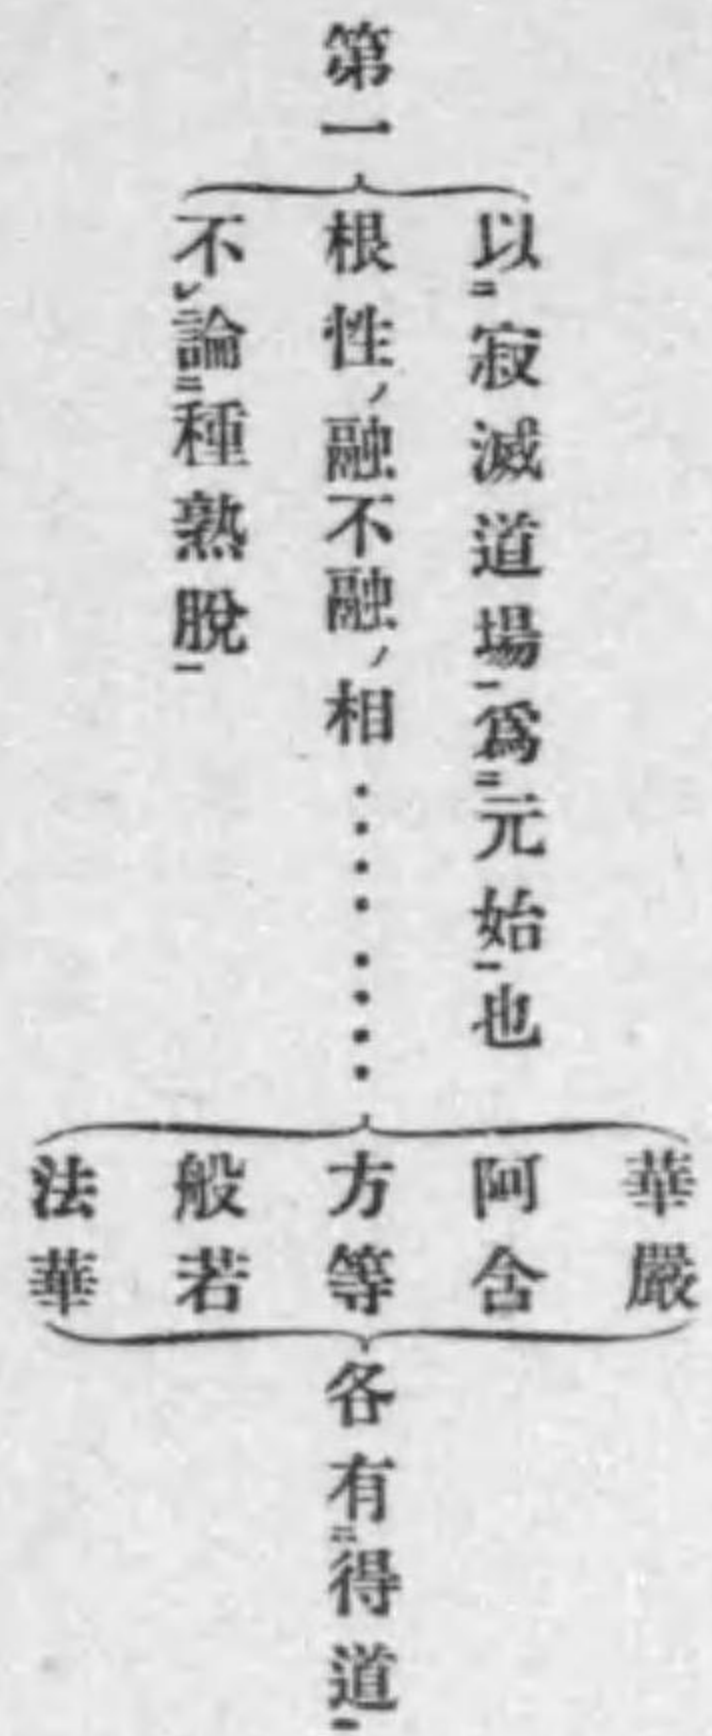 第一
以㆓寂滅道場㆒爲㆓元始㆒也
根性ノ融不融ノ相…………
不㆑論㆓種熟脫㆒
華嚴
阿含
方等
般若
法華
各有㆓得道㆒